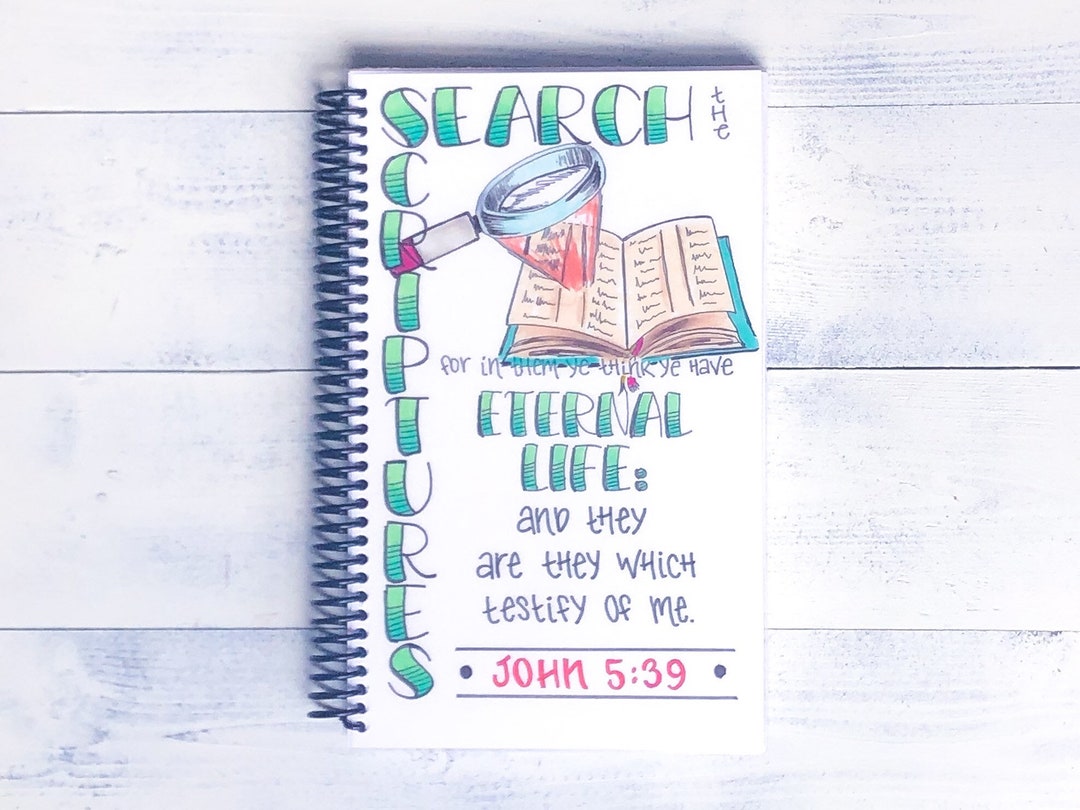 SEARCH tHe
SCRIPTURES
for in them ye think ye Have
ETERNAL
LIFE:
AND tHey
are tHey WHICH
testify of me.
• JOHN 5:39 •